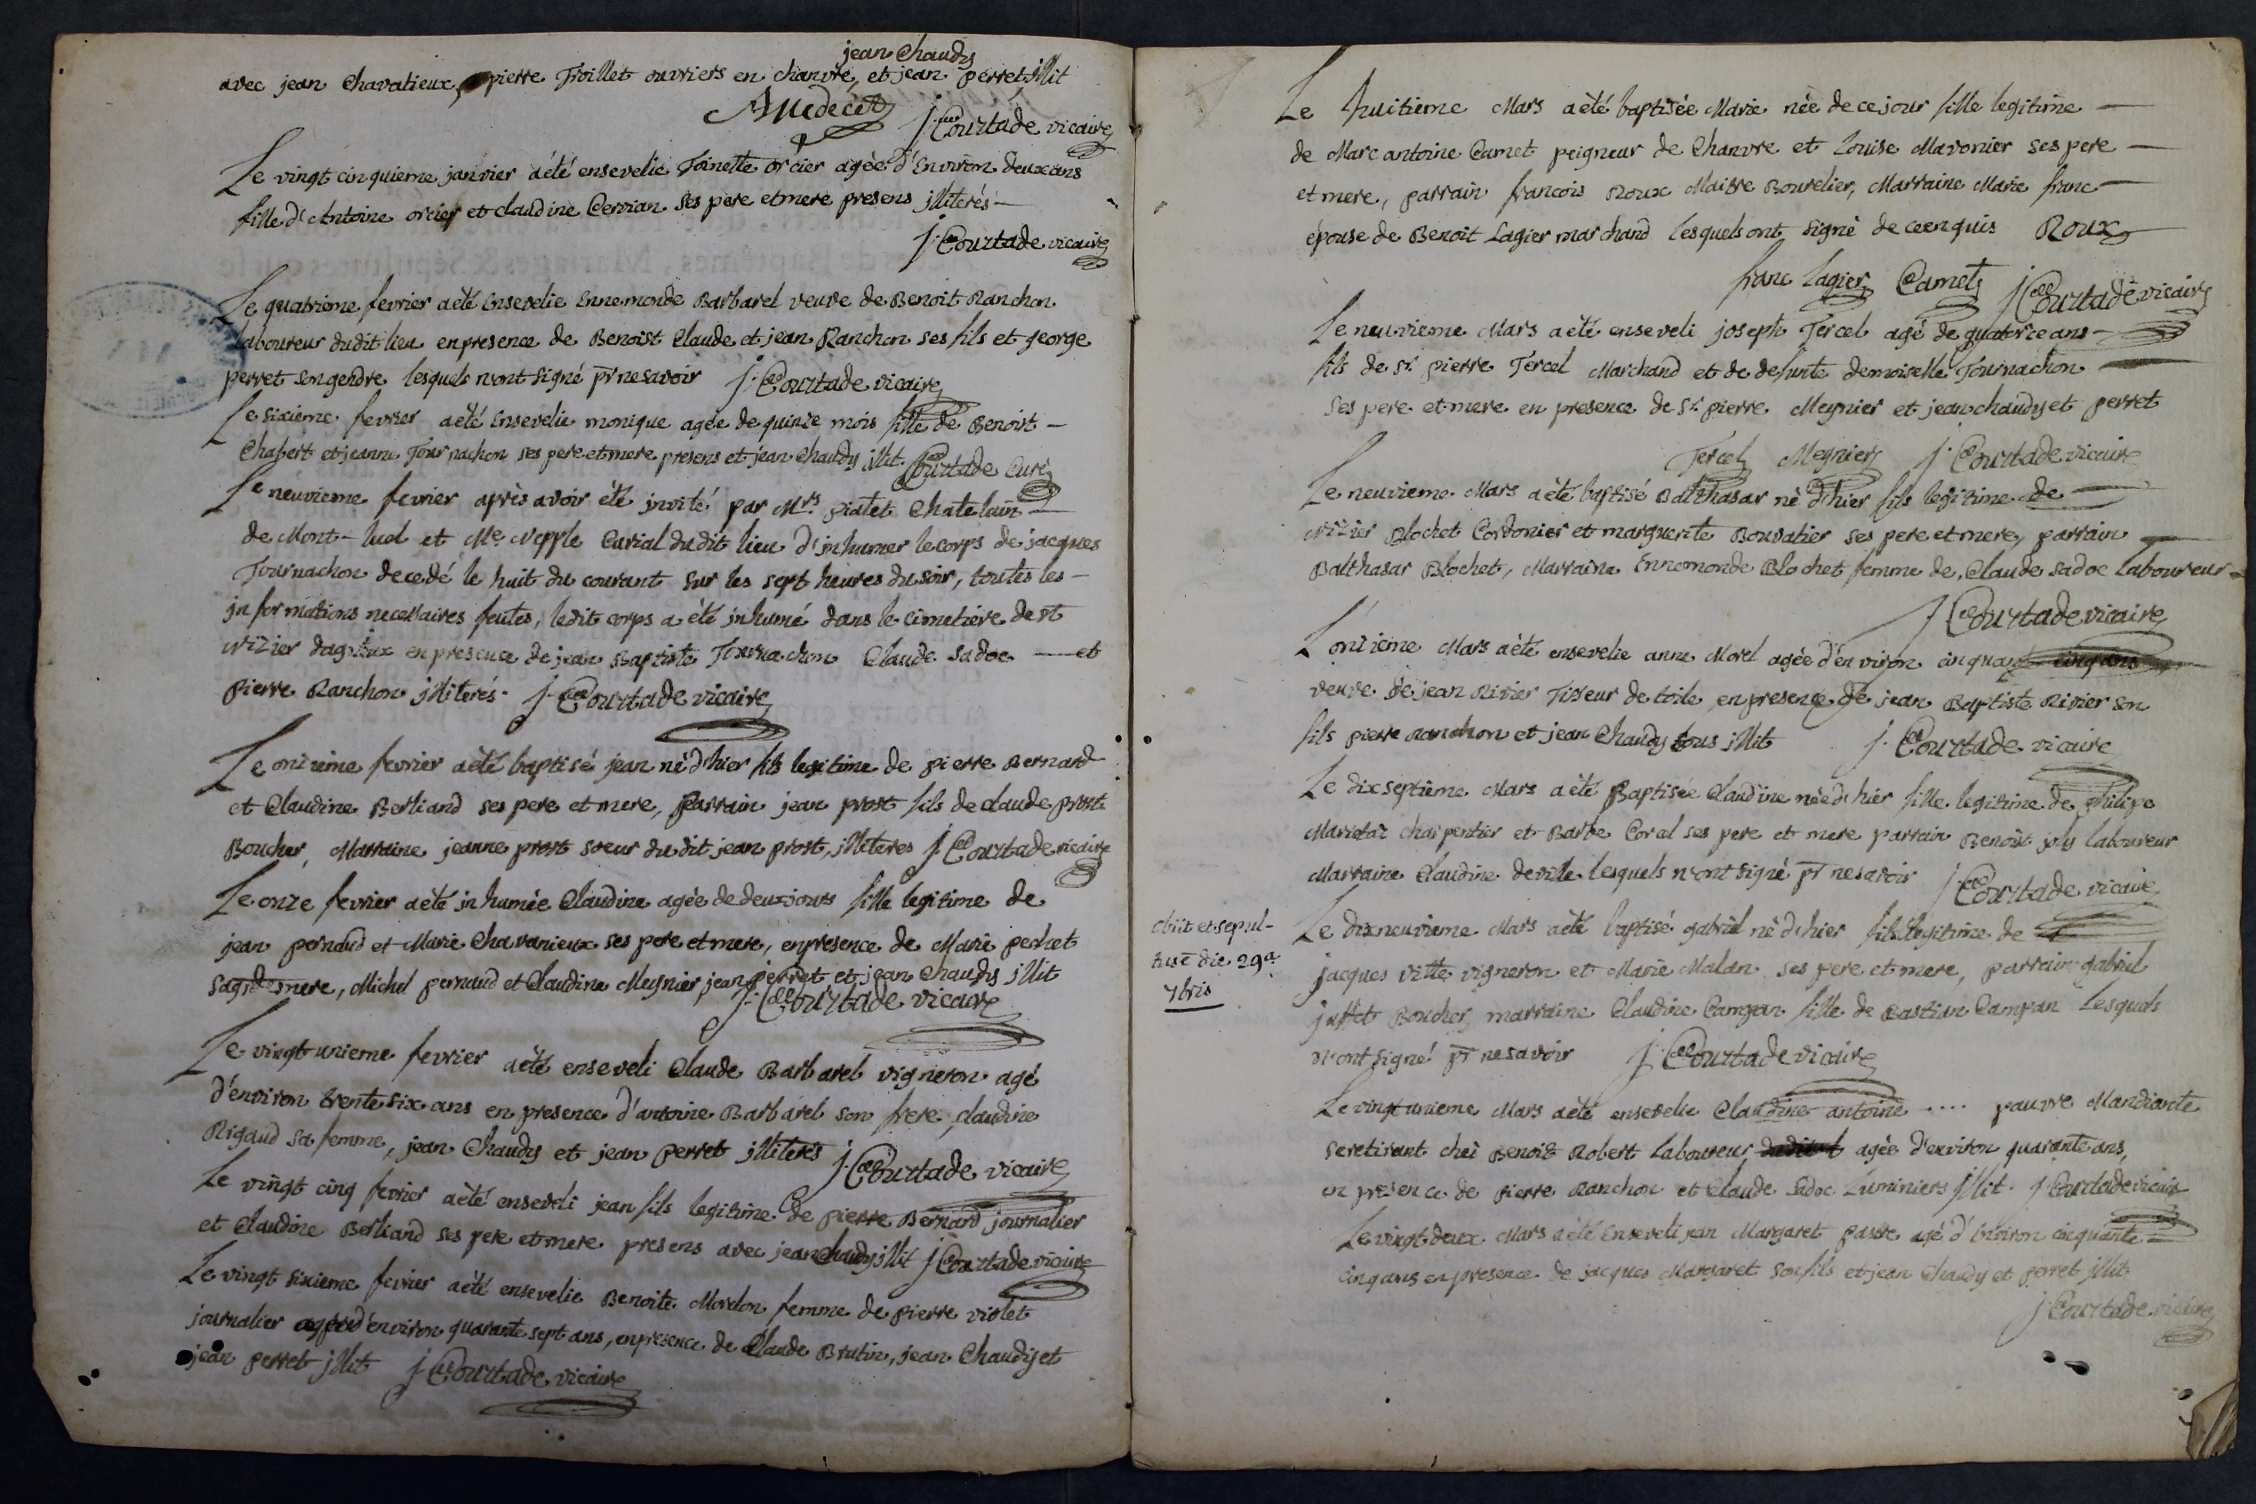 jean Chaudy
avec jean Chavatieux, pierre Troillet ouvriers en chanvre, et jean perret, illit
J. Courtade vicaire
Le vingt cinquieme janvier a été ensevelie Toinette orcier agée d'Environ deux ans
fille d'Antoine orcier et claudine Cervian ses pere et mere presens illiterés —
J. Courtade vicaire
Le quatrieme fevrier a eté Ensevelie Ennemonde Barbarel veuve de Benoit Ranchon
laboureur dudit lieu en presence de Benoist Claude et jean Ranchon ses fils et george
perret son gendre lesquels n'ont signé pr ne savoir J. Courtade vicaire
Le sixieme fevrier a eté Ensevelie monique agée de quinze mois fille de Benoit —
Chabert et jeanne Tournachon ses pere et mere presens et jean Chaudy illit. Courtade Curé
Le neuvieme fevrier après avoir été invité par Mrs. piatet Chatelain —
de Mont-luel et Me. Nepple Curial dudit lieu d'inhumer le corps de jacques
Tournachon decedé le huit du courant sur les sept heures du soir, toutes les —
informations necessaires feutes, ledit corps a été inhumé dans le cimetiere de st
Nizier dagnieux en presence de jean Baptiste Tournachon Claude sadoc — et
pierre Ranchon illiterés. J. Courtade vicaire
Le onzieme fevrier a eté baptisé jean né d'hier fils legitime de pierre Bernard
et Claudine Berliand ses pere et mere, parrain jean prost fils de claude prost
Boucher, Marraine jeanne prost soeur du dit jean prost, illiteres J. Courtade vicaire
Le onze fevrier a eté inhumée Claudine agée de deux jours fille legitime de
jean pernaud et Marie Chavanieux ses pere et mere, en presence de Marie perket
sage mere, Michel pernaud et Claudine Meynier, jean perret et jean Chaudy illit
J. Courtade vicaire
Le vingt unieme fevrier a eté enseveli Claude Barbarel vigneron agé
d'environ trente six ans en presence d'antoine Barbarel son frere, claudine
Rigaud sa femme, jean Chaudy et jean perret illiterés J. Courtade vicaire
Le vingt cinq fevrier a eté enseveli jean fils legitime de pierre Bernard journalier
et Claudine Berliand ses pere et mere presens avec jean chaudy illit J Courtade vicaire
Le vingt sixieme fevrier a eté ensevelie Benoite Mordon femme de pierre violet
journalier agée d'environ quarante sept ans, en presence de Claude Brutin, jean Chaudy et
jean perret illit J Courtade vicaire
Le huitieme Mars a été baptisée Marie née de ce jour fille legitime —
de Marc antoine Camet peigneur de Chanvre et Louise Mavonier ses pere —
et mere, parrain francois Roux Maitre Bourelier, Marraine Marie franc —
epouse de Benoit Lagier marchand lesquels ont signé de ce enquis Roux
franc Lagier Camet J Courtade vicaire
Le neuvieme Mars a eté enseveli joseph Tercel agé de quatorze ans —
fils de sr. pierre Tercel Marchand et de defunte demoiselle Tournachon —
ses pere et mere en presence de sr. pierre Meynier et jean chaudy et perret
Tercel Meynier J. Courtade vicaire
Le neuvieme Mars a eté baptisé Balthasar né d'hier fils legitime de —
Nizier Blochet Cordonier et marguerite Bouvatier ses pere et mere, parrain —
Balthasar Blochet, Marraine Ennemonde Blochet femme de Claude sadoc Laboureur
J Courtade vicaire
L'onzieme Mars a eté ensevelie anne Morel agée d'environ cinquante cinq ans
veuve de jean Rivier Tisseur de toile, en presence de jean Baptiste Rivier son
fils pierre ranchon et jean Chaudy tous illit J. Courtade vicaire
Le dix septieme Mars a eté Baptisée Claudine née d'hier fille legitime de philipe
charpentier et Barbe Coral ses pere et mere parrain Benoit joly laboureur
Marraine Claudine devile lesquels n'ont signé pr ne savoir J. Courtade vicaire
obiit et sepul-
tus e die 29a
7bris
Le dix neuvieme Mars a eté baptisé gabriel né d'hier fils legitime de
jacques vitte vigneron et Marie Malan ses pere et mere, parrain gabriel
juffet Boucher, marraine Claudine Campan fille de Bastian Campan lesquels
n'ont signé pr ne savoir J. Courtade vicaire
Le vingt unieme Mars a eté ensevelie Claudine antoine .... pauvre Mandiante
se retirant chés Benoit Robert Laboureur agée d'environ quarante ans,
en presence de pierre Ranchon et Claude sadoc Luminiers illit. J Courtade vicaire
Le vingt deux Mars a eté Enseveli jean Margaret pauvre agé d'Environ cinquante —
cinq ans en presence de jacques Margaret son fils et jean Chaudy et perret illit
J Courtade vicaire